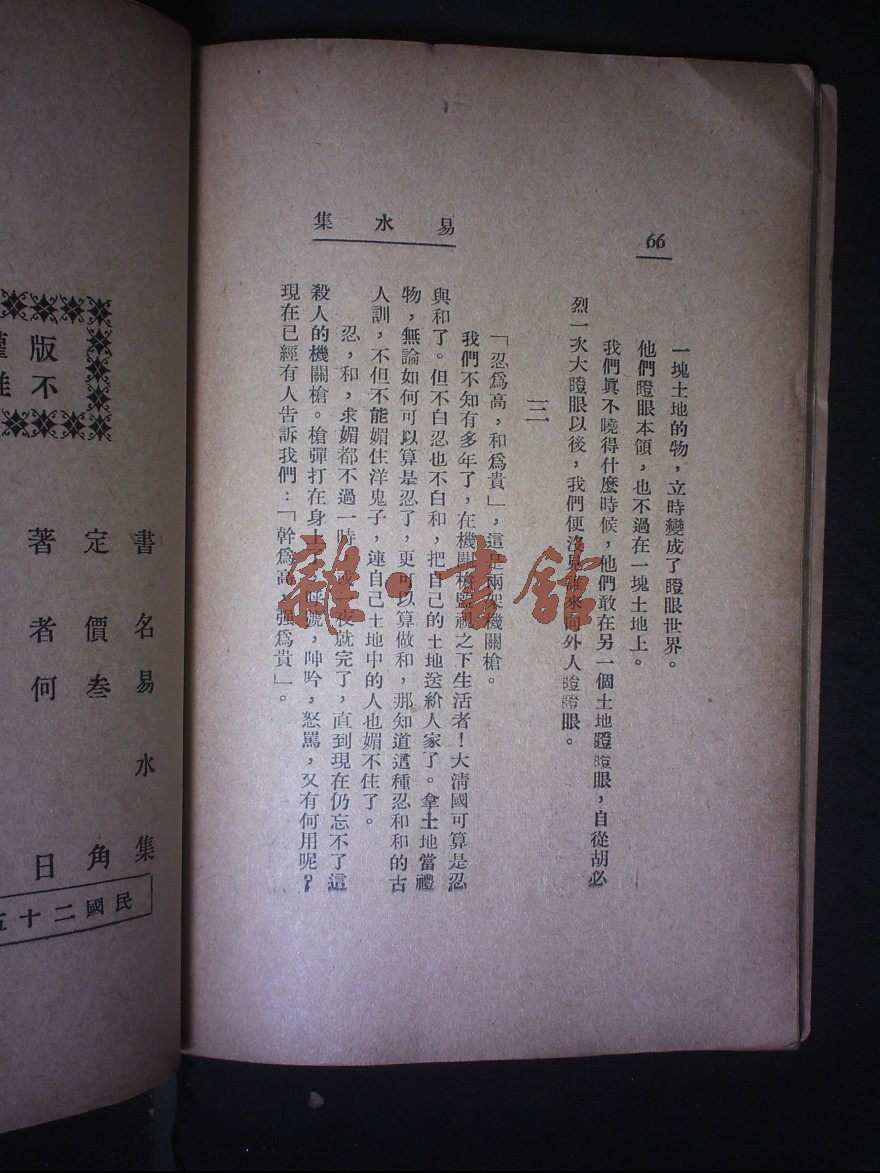 易水集
66
一塊土地的物，立時變成了瞪眼世界。
他們瞪眼本領，也不過在一塊土地上。
我們眞不曉得什麼時候，他們敢在另一個土地瞪瞪眼，自從胡必
烈一次大瞪眼以後，我們便沒見誰來向外人瞪瞪眼。
三
「忍爲高，和爲貴」，這是兩架機關槍。
我們不知有多年了，在機關槍監視之下生活者！大淸國可算是忍
與和了。但不白忍也不白和，把自己的土地送給人家了。拿土地當禮
物，無論如何可以算是忍了，更可以算做和，那知道這種忍和和的古
人訓，不但不能媚住洋鬼子，連自己土地中的人也媚不住了。
忍，和，求媚都不過一時，夜就完了，直到現在仍忘不了這
殺人的機關槍。槍彈打在身上了，呼號，呻吟，怒駡，又有何用呢？
現在已經有人告訴我們：「幹爲高，强爲貴」。
雜·書館
版
不
書名易水集
定價叁角
著者何日
民國二十五